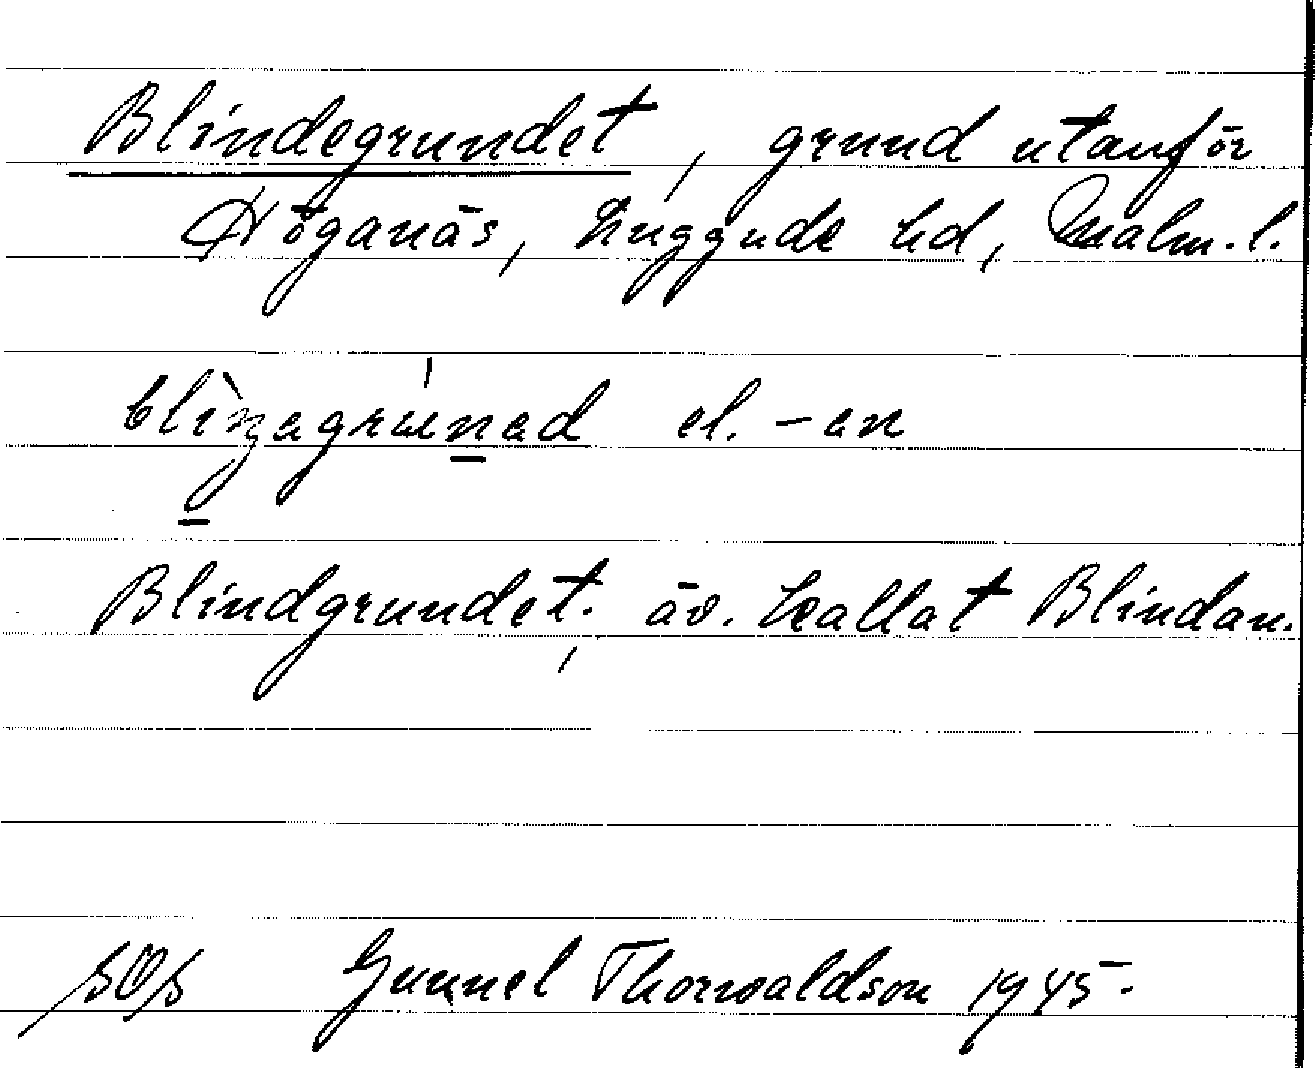 Blindegrundet, grund utanför
Höganäs, Luggude hd, Malm. l.
el. -en
Blindgrundet, äv. kallat Blindan.
SOS Gunnel Thorwaldson 1945.